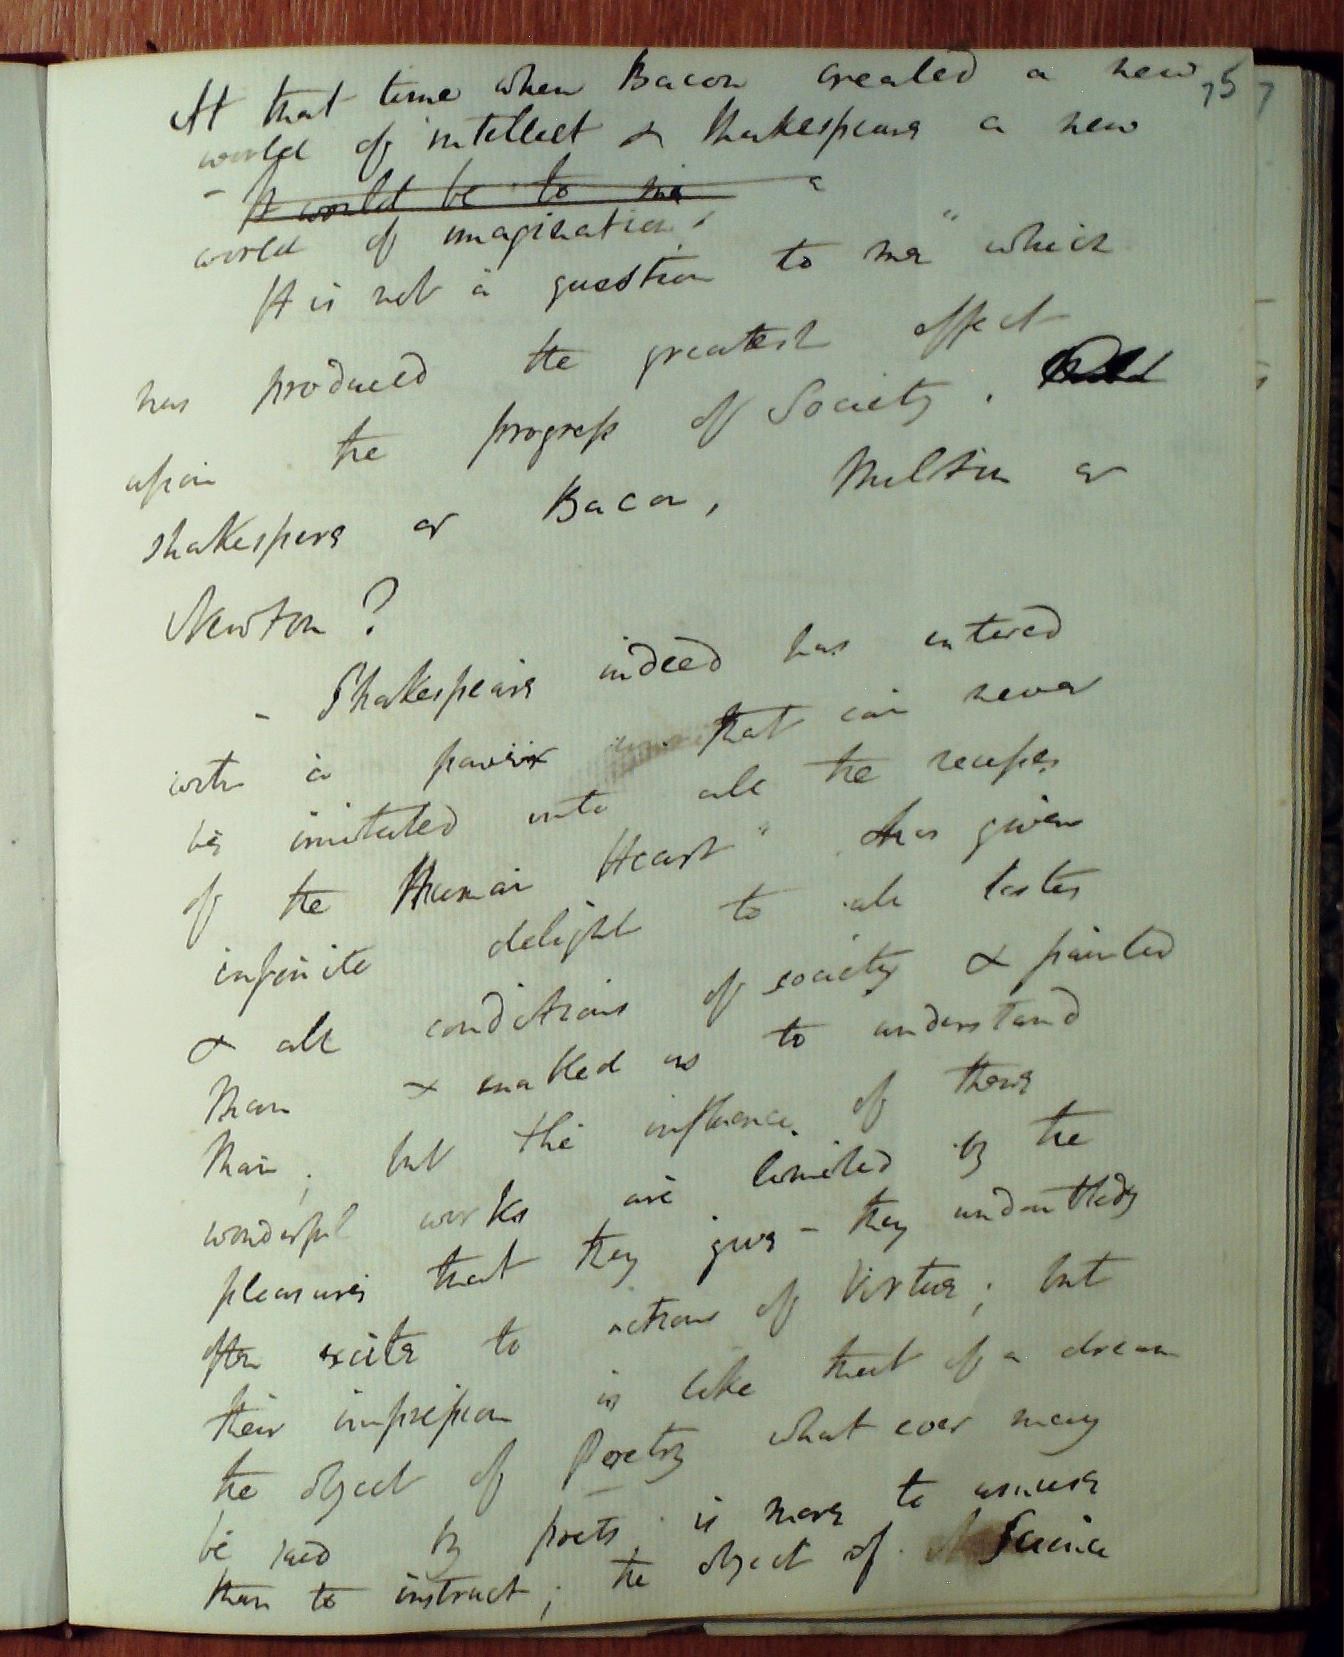 At that time when Bacon created a new 75 7
world of intellect & Shakespeare a new
- It would be to me a
world of imagination.
It is not a question to me "which
has produced the greatest effect
upon the progress of Society.
Shakespere or Bacon, Milton or
Newton?
- Shakespeare indeed has entered
with a power that can never
be imitated into all the recesses
of the Human Heart" has given
infinite delight to all tastes
& all conditions of society & painted
Man & enabled us to understand
Man; but the influence of these
wonderful works are limited by the
pleasures that they give - they undoubtedly
often excite to actions of Virtue; but
their impression is like that of a dream
the object of Poetry what ever may
be said by poets is more to amuse
than to instruct; the object of Science